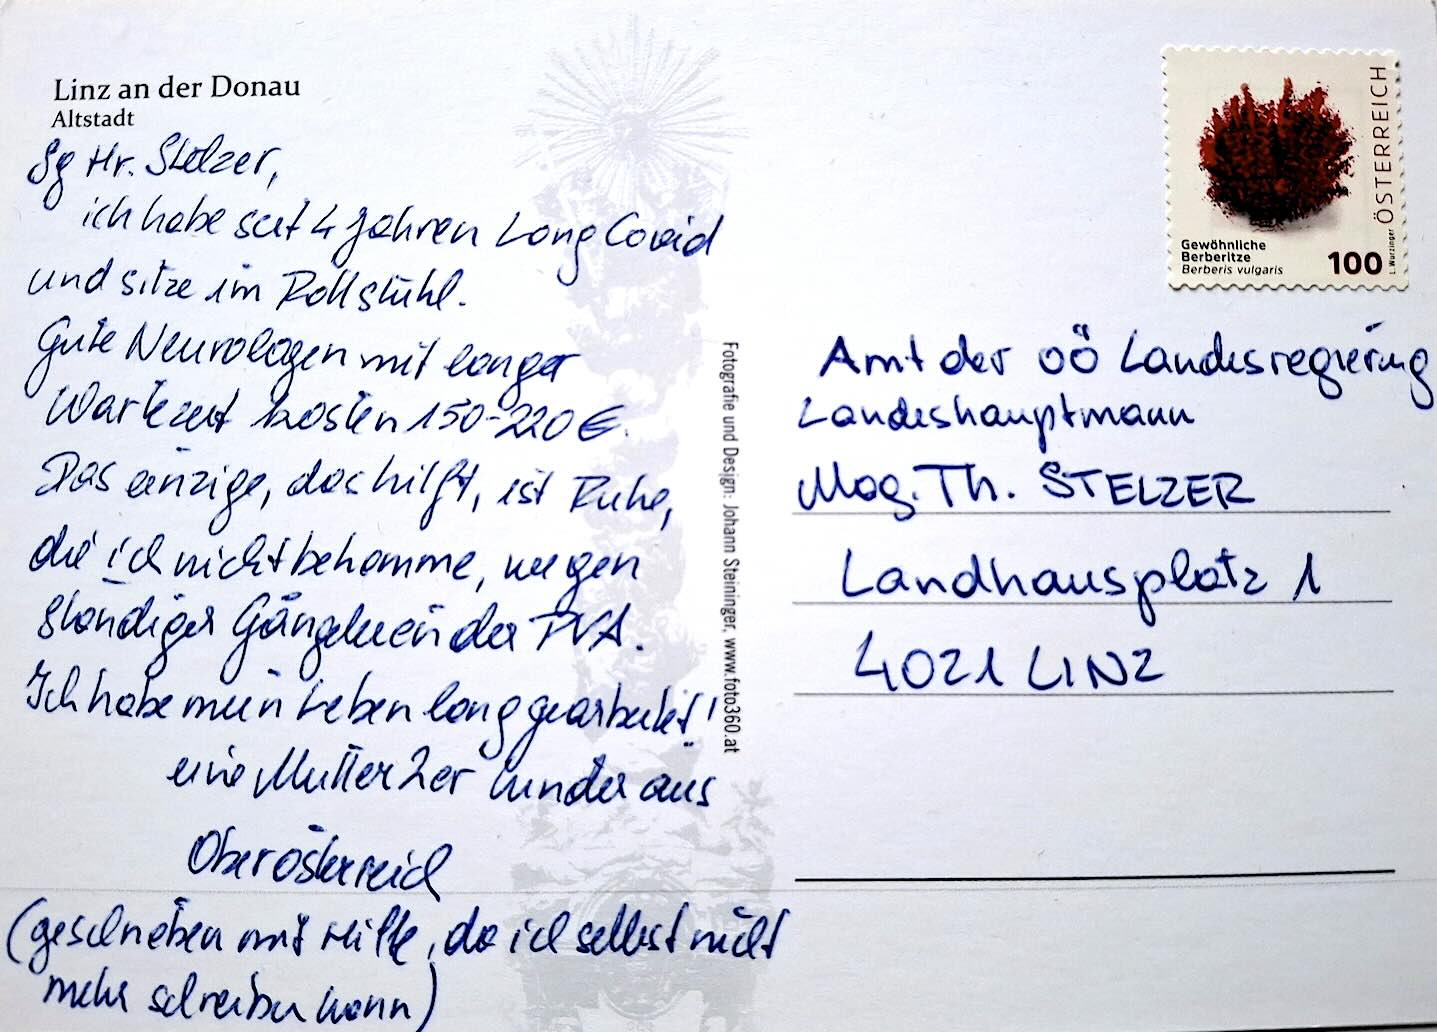 Linz an der Donau
Altstadt
Sg Hr. Stelzer,
ich habe seit 4 Jahren Long Covid
und sitze im Rollstuhl.
Gute Neurologen mit langer
Wartezeit kosten 150-220 €.
Das einzige, das hilft, ist Ruhe,
die ich nicht bekomme, wegen
ständiger Gängeleien der PVA.
Ich habe mein Leben lang gearbeitet!
eine Mutter 2er Kinder aus
Oberösterreich
(geschrieben mit Hilfe, da ich selbst nicht
mehr schreiben kann)
Fotografie und Design: Johann Steininger, www.foto360.at
ÖSTERREICH
L. Wurzinger
Gewöhnliche
Berberitze
Berberis vulgaris
100
Amt der OÖ Landesregierung
Landeshauptmann
Mag. Th. STELZER
Landhausplatz 1
4021 LINZ